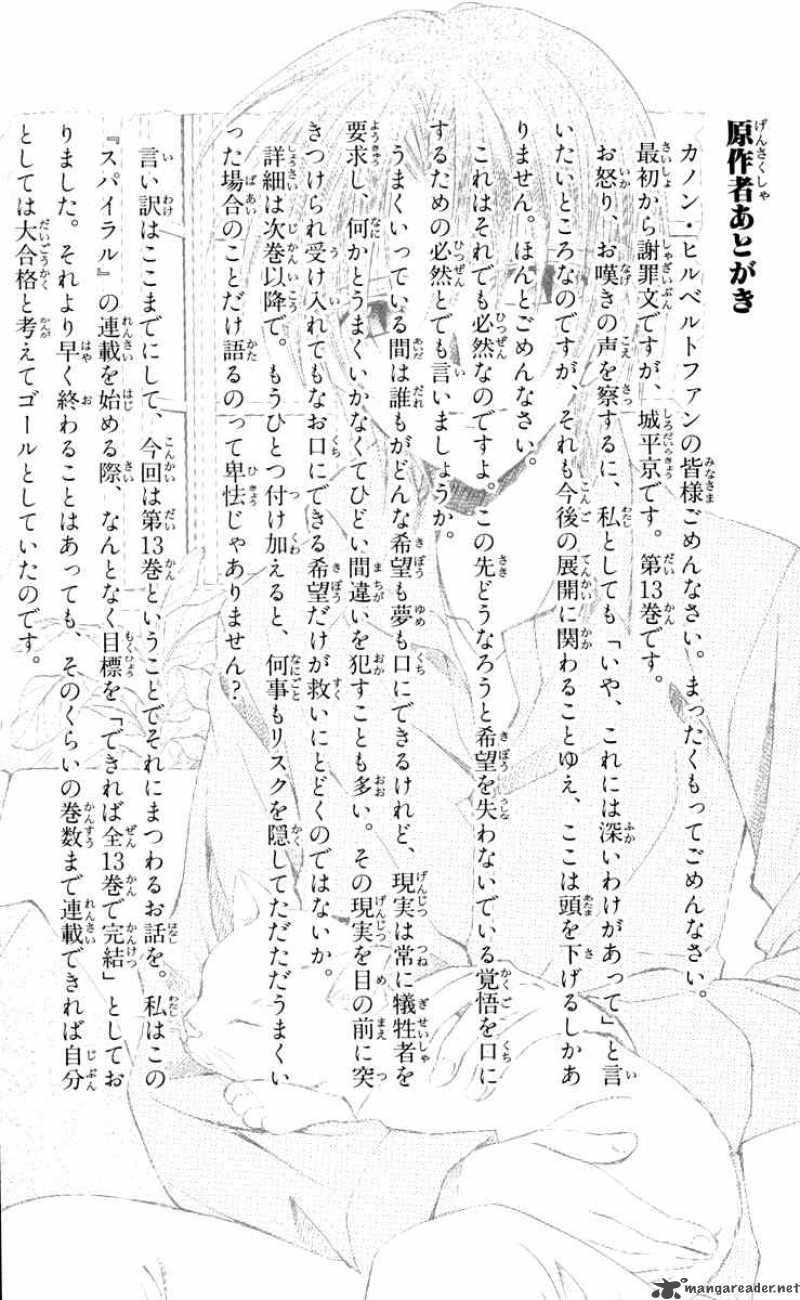 原作者あとがき
カノン・ヒルベルトファンの皆様ごめんなさい。まったくもってごめんなさい。
最初から謝罪文ですが、城平京です。第13巻です。
お怒り、お嘆きの声を察するに、私としても「いや、これには深いわけがあって」と言
いたいところなのですが、それも今後の展開に関わることゆえ、ここは頭を下げるしかあ
りません。ほんとごめんなさい。
これはそれでも必然なのですよ。この先どうなろうと希望を失わないでいる覚悟を口に
するための必然とでも言いましょうか。
うまくいっている間は誰もがどんな希望も夢も口にできるけれど、現実は常に犠牲者を
要求し、何かとうまくいかなくてひどい間違いを犯すことも多い。その現実を目の前に突
きつけられ受け入れてもなお口にできる希望だけが救いにとどくのではないか。
詳細は次巻以降で。もうひとつ付け加えると、何事もリスクを隠してただただうまくい
った場合のことだけ語るのって卑怯じゃありません？
言い訳はここまでにして、今回は第13巻ということでそれにまつわるお話を。私はこの
『スパイラル』の連載を始める際、なんとなく目標を「できれば全13巻で完結」としてお
りました。それより早く終わることはあっても、そのくらいの巻数まで連載できれば自分
としては大合格と考えてゴールとしていたのです。
mangareader.net